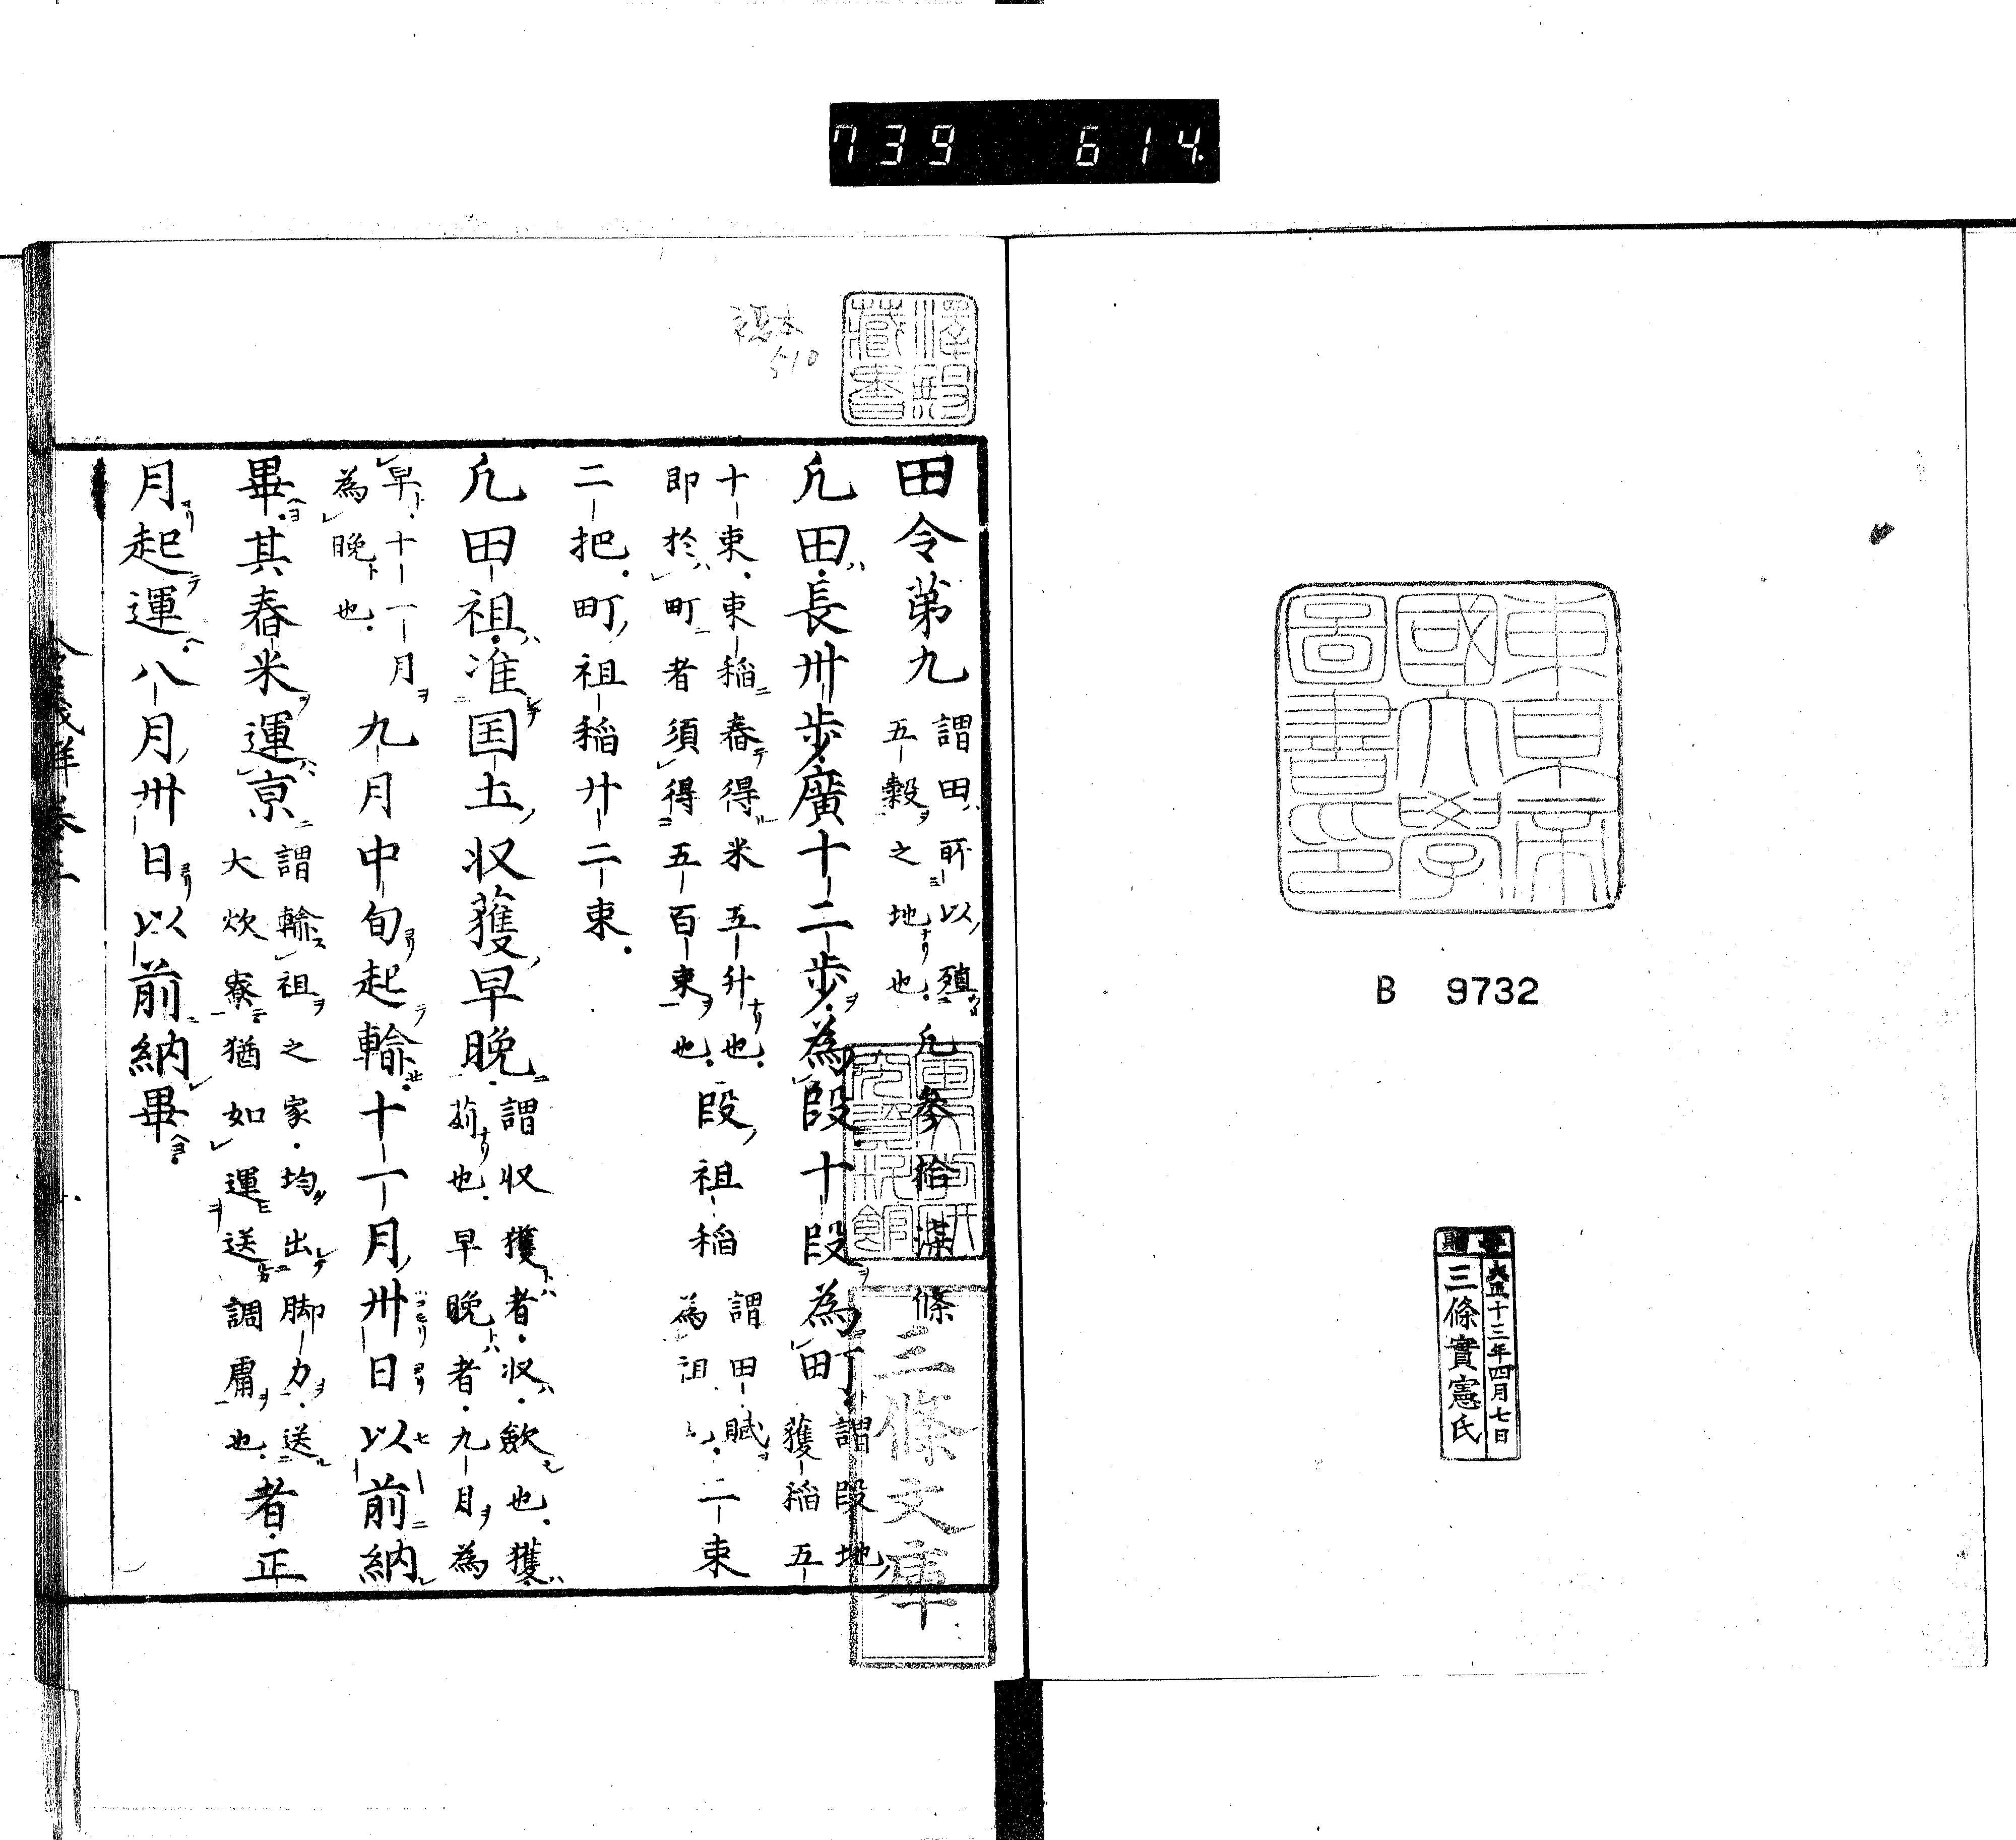 739 614
東京帝
國大學
圖書印
B 9732
寄贈
大正十三年四月七日
三條實憲氏
橋本
510
藏書
田令第九 謂田所以殖
五穀之地也 凡參拾漆條
凡田長卅歩廣十二歩為段十段為町 謂段地
獲稲五
十束束稲舂得米五升也
即於町者須得五百束也 段租稲 謂田賦
為租 二束
二把町租稲廿二束
凡田租准国土収獲早晩 謂収獲者収歛也獲
苅也早晩者九月為
早十一月
為晩也 九月中旬起輸十一月卅日以前納
畢其舂米運京 謂輸租之家均出脚力送
大炊寮猶如運送調庸也 者正
月起運八月卅日以前納畢
三條文庫